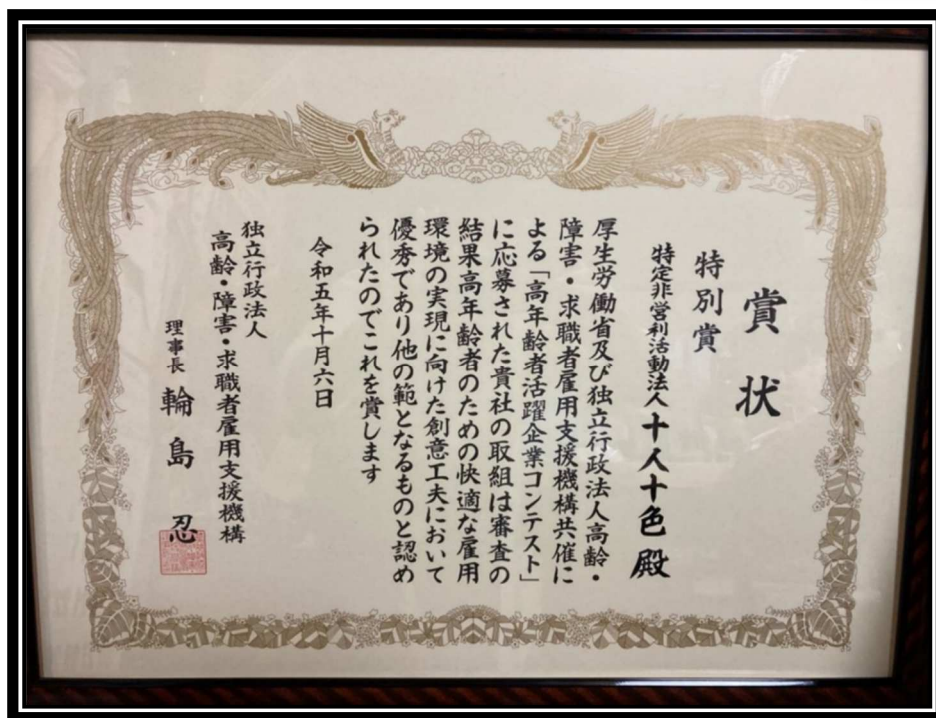 賞状
特別賞
特定非営利活動法人 十人十色 殿
厚生労働省及び独立行政法人高齢・
障害・求職者雇用支援機構共催に
よる「高年齢者活躍企業コンテスト」
に応募された貴社の取組は審査の
結果高年齢者のための快適な雇用
環境の実現に向けた創意工夫において
優秀であり他の範となるものと認め
られたのでこれを賞します
令和五年十月六日
独立行政法人
高齢・障害・求職者雇用支援機構
理事長 輪島 忍